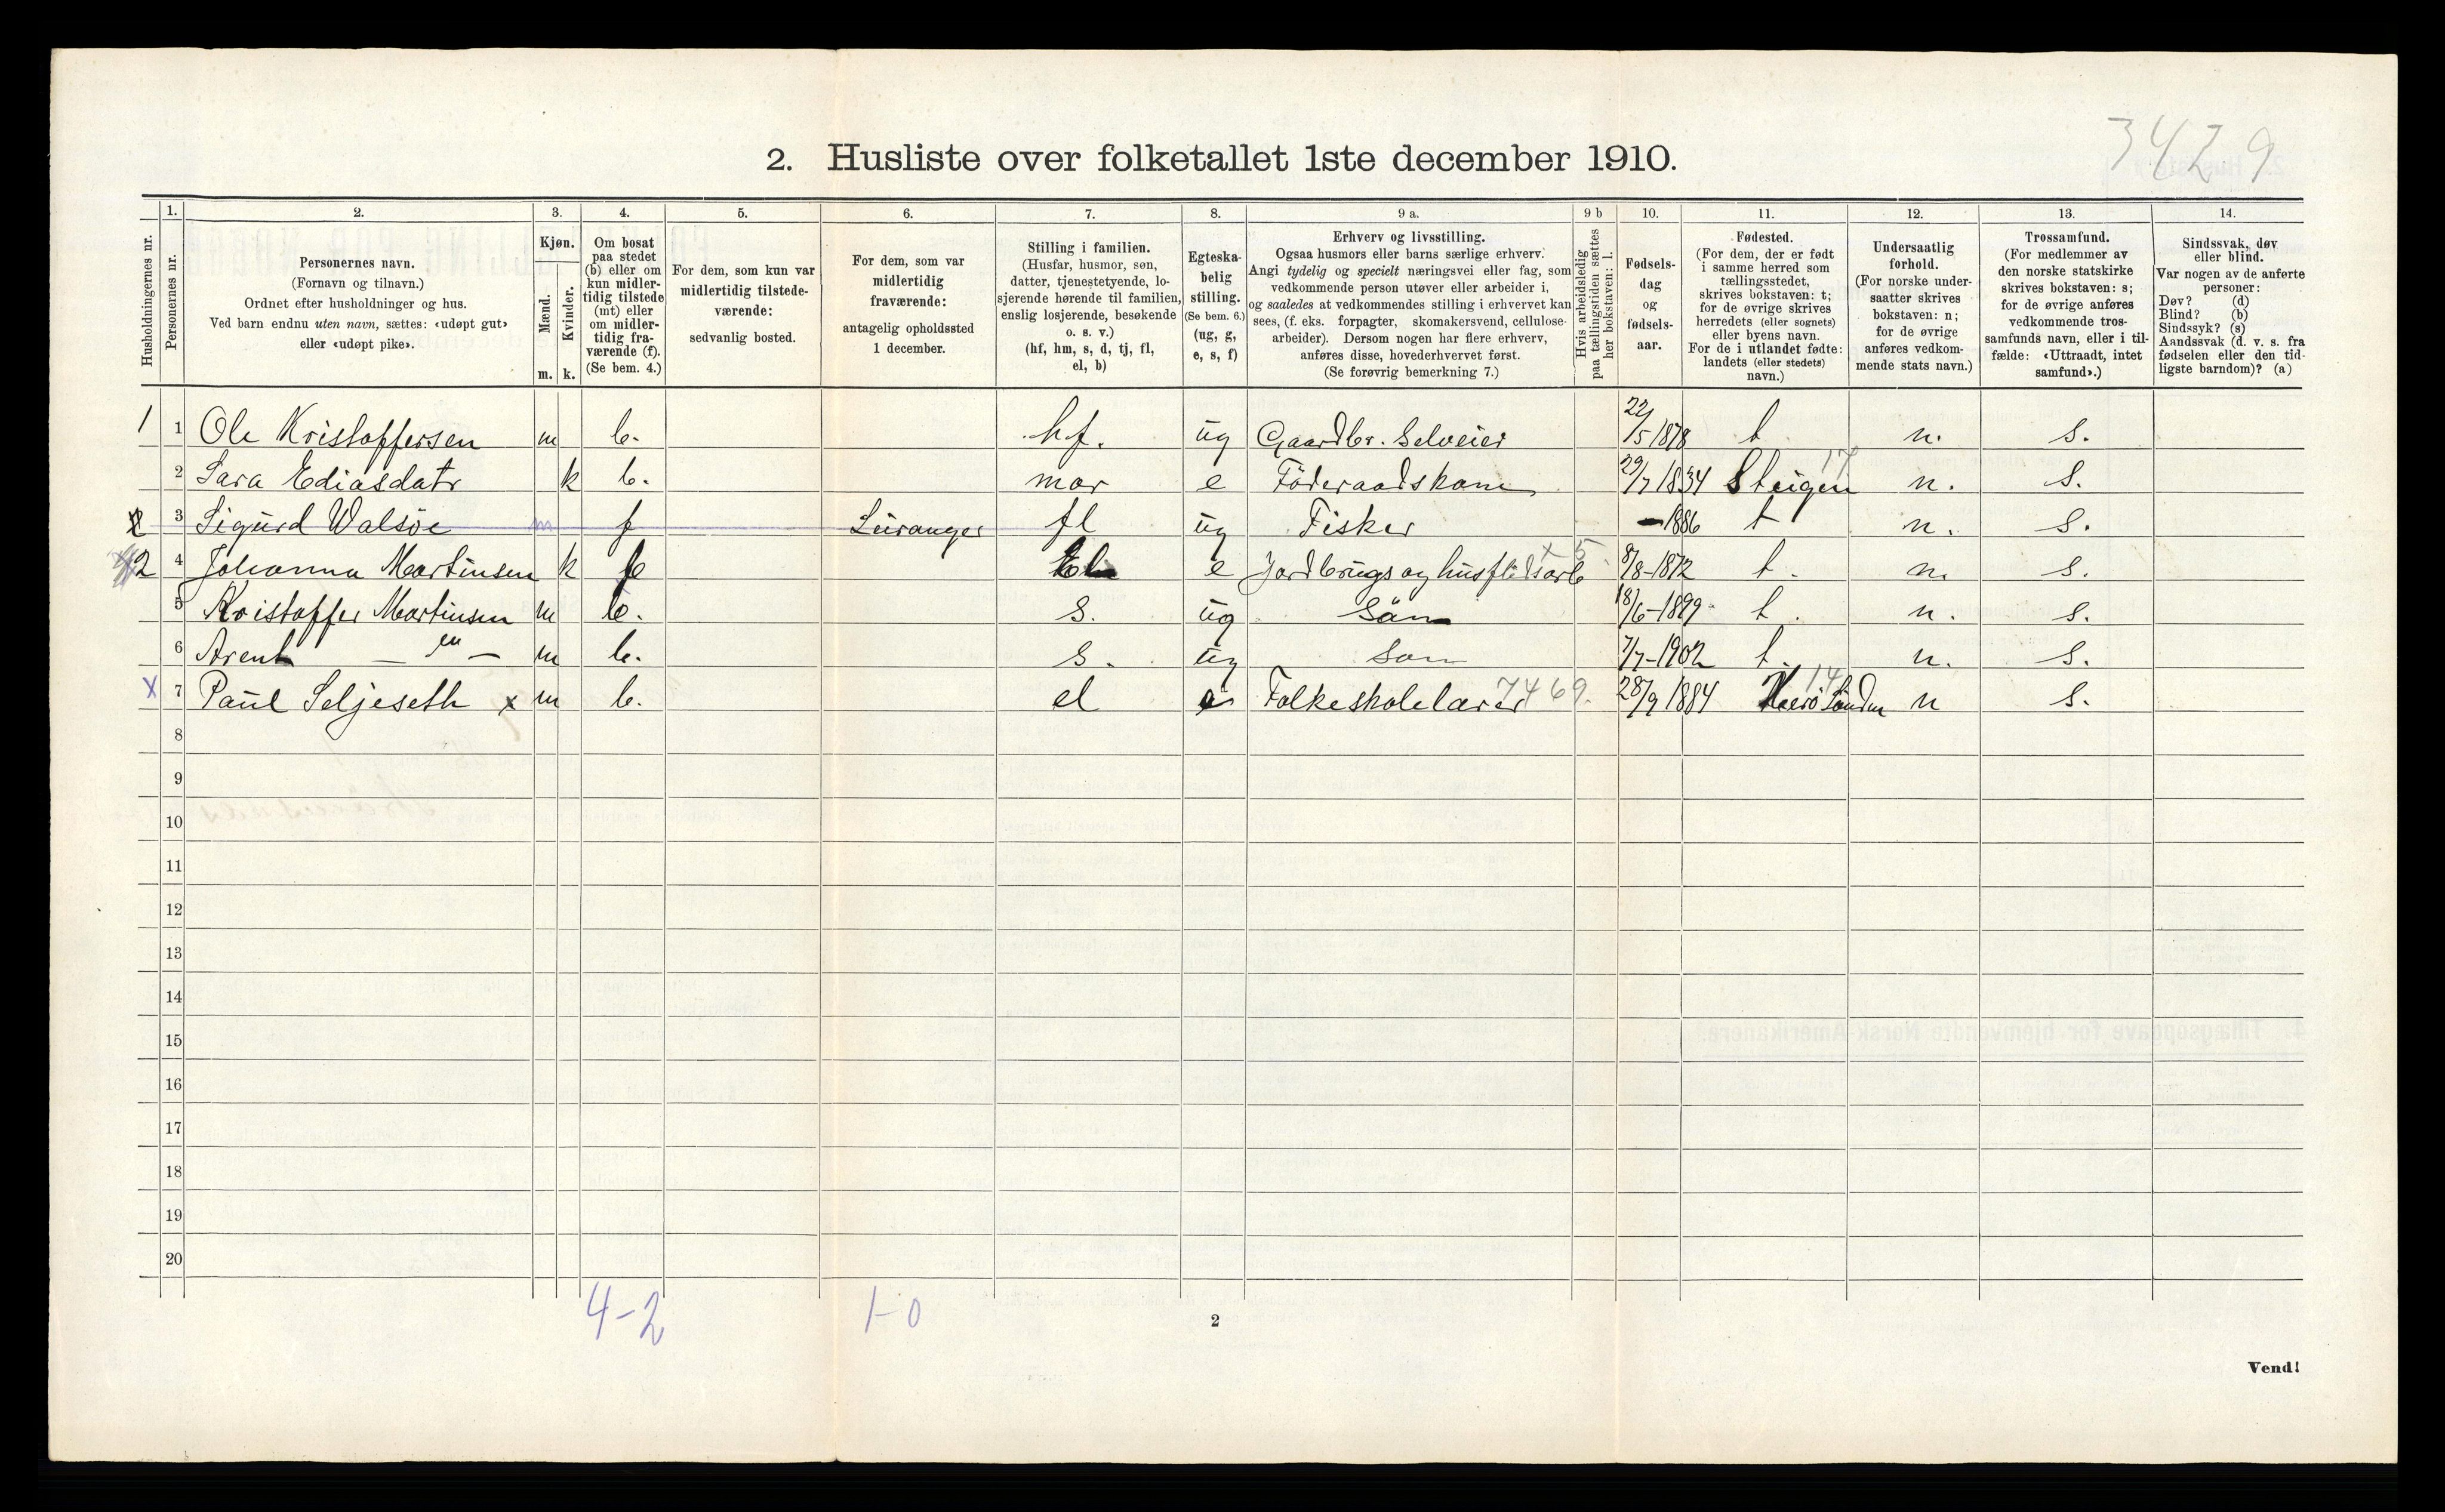 3429
2. Husliste over folketallet 1ste december 1910.
Husholdningernes nr.
1. Personernes nr.
2. Personernes navn.
(Fornavn og tilnavn.)
Ordnet efter husholdninger og hus.
Ved barn endnu uten navn, sættes: «udøpt gut»
eller «udøpt pike».
3. Kjøn.
Mænd. m.
Kvinder. k.
4. Om bosat
paa stedet
(b) eller om
kun midler-
tidig tilstede
(mt) eller
om midler-
tidig fra-
værende (f).
(Se bem. 4.)
5. For dem, som kun var
midlertidig tilstede-
værende:
sedvanlig bosted.
6. For dem, som var
midlertidig
fraværende:
antagelig opholdssted
1 december.
7. Stilling i familien.
(Husfar, husmor, søn,
datter, tjenestetyende, lo-
sjerende hørende til familien,
enslig losjerende, besøkende
o. s. v.)
(hf, hm, s, d, tj, fl,
el, b)
8. Egteska-
belig
stilling.
(Se bem. 6.)
(ug, g,
e, s, f)
9 a. Erhverv og livsstilling.
Ogsaa husmors eller barns særlige erhverv.
Angi tydelig og specielt næringsvei eller fag, som
vedkommende person utøver eller arbeider i,
og saaledes at vedkommendes stilling i erhvervet kan
sees, (f. eks. forpagter, skomakersvend, cellulose-
arbeider). Dersom nogen har flere erhverv,
anføres disse, hovederhvervet først.
(Se forøvrig bemerkning 7.)
9 b Hvis arbeidsledig
paa tællingstiden sættes
her bokstaven: l.
10. Fødsels-
dag
og
fødsels-
aar.
11. Fødested.
(For dem, der er født
i samme herred som
tællingsstedet,
skrives bokstaven: t;
for de øvrige skrives
herredets (eller sognets)
eller byens navn.
For de i utlandet fødte:
landets (eller stedets)
navn.)
12. Undersaatlig
forhold.
(For norske under-
saatter skrives
bokstaven: n;
for de øvrige
anføres vedkom-
mende stats navn.)
13. Trossamfund.
(For medlemmer av
den norske statskirke
skrives bokstaven: s;
for de øvrige anføres
vedkommende tros-
samfunds navn, eller i til-
fælde: «Uttraadt, intet
samfund».)
14. Sindssvak, døv
eller blind.
Var nogen av de anførte
personer:
Døv? (d)
Blind? (b)
Sindssyk? (s)
Aandssvak (d. v. s. fra
fødselen eller den tid-
ligste barndom)? (a)
1 1 Ole Kristoffersen m b. hf. ug Gaardbr. Selveier 22/5 1878 t n. s.
2 Sara Ediasdatr k b. mor e Föderaadskone 29/7 1834 Steigen 17 n. s.
2 3 Sigurd Valsöe m f Leiranger fl ug Fisker - 1886 t n. s.
2 4 Johanna Martinsen k b El e Jordbrugs og husflidsarb x 5 8/8-1872 t. n. s.
5 Kristoffer Martinsen m b. s. ug Sön 18/6-1899 t. n. s.
6 Arent — " — m b. s. ug Son 7/7-1902 t. n. s.
x 7 Paul Seljeseth x m b. el Folkeskolelærer 7469. 28/9 1884 Herö Söndm 14 n s.
8
9
10
11
12
13
14
15
16
17
18
19
20
4-2 1-0
2
Vend!